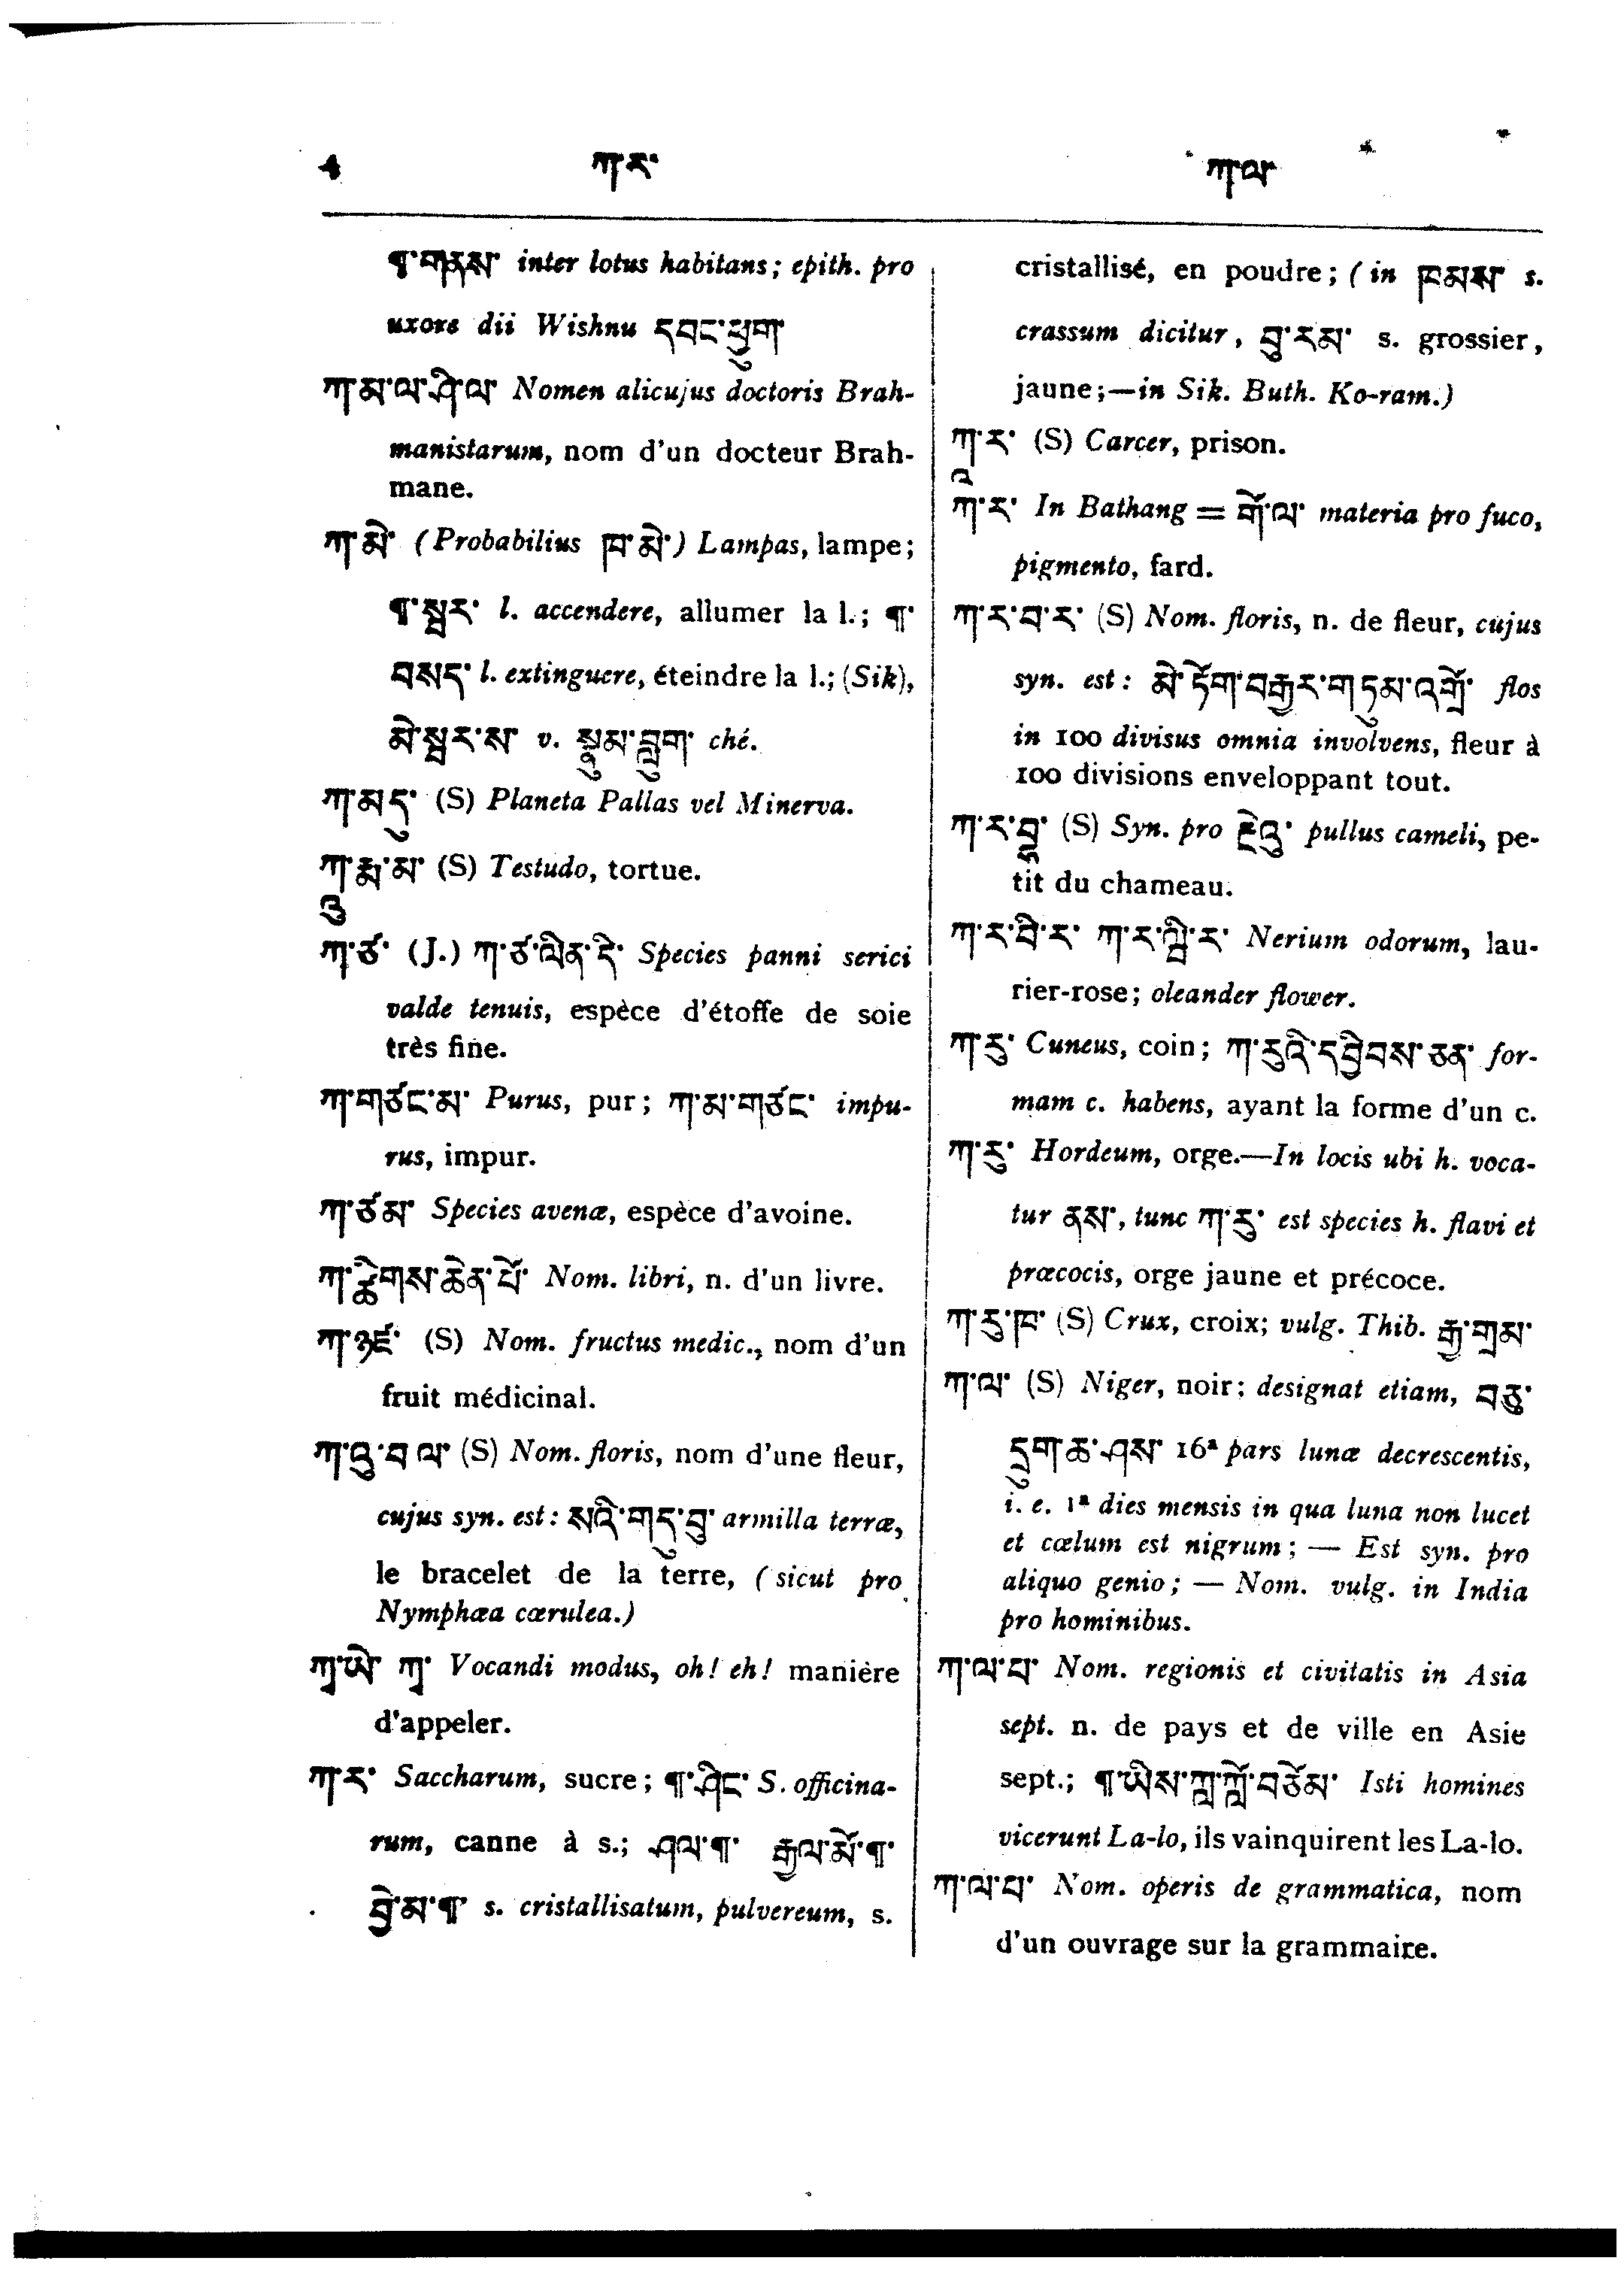 4
ཀ་ར་
ཀ་ལ་
¶་གནས་ inter lotus habitans; epith. pro
uxore dii Wishnu དབང་ཕྱུག་
ཀ་མ་ལ་ཤི་ལ་ Nomen alicujus doctoris Brah-
manistarum, nom d'un docteur Brah-
mane.
ཀ་མེ་ (Probabilius ཁ་མེ་) Lampas, lampe;
¶་སྦར་ l. accendere, allumer la l.; ¶་
བསད་ l. extinguere, éteindre la l.; (Sik),
མེ་སྦར་ས་ v. སྣུམ་བླུག་ ché.
ཀ་མདུ་ (S) Planeta Pallas vel Minerva.
ཀ་རྨ་མ་ (S) Testudo, tortue.
ཀ་ཙ་ (J.) ཀ་ཙ་ལིན་དེ་ Species panni serici
valde tenuis, espèce d'étoffe de soie
très fine.
ཀ་གཙང་མ་ Purus, pur; ཀ་མ་གཙང་ impu-
rus, impur.
ཀ་ཙམ་ Species avenæ, espèce d'avoine.
ཀ་རྩེགས་ཆེན་པོ་ Nom. libri, n. d'un livre.
(S) Nom. fructus medic., nom d'un
fruit médicinal.
ཀ་འུ་བ་ལ་ (S) Nom. floris, nom d'une fleur,
cujus syn. est: སའི་གདུ་བུ་ armilla terræ,
le bracelet de la terre, (sicut pro
Nymphæa cærulea.)
ཀྭ་ཡེ་ ཀྭ་ Vocandi modus, oh! eh! manière
d'appeler.
ཀ་ར་ Saccharum, sucre; ¶་ཤིང་ S. officina-
rum, canne à s.; ཤལ་¶་ རྒྱལ་མོ་¶་
བྱེ་མ་¶་ s. cristallisatum, pulvereum, s.
cristallisé, en poudre; (in ཁམས་ s.
crassum dicitur, བུ་རམ་ s. grossier,
jaune;—in Sik. Buth. Ko-ram.)
ཀཱ་ར་ (S) Carcer, prison.
ཀ་ར་ In Bathang = གོ་ལ་ materia pro fuco,
pigmento, fard.
ཀ་ར་བ་ར་ (S) Nom. floris, n. de fleur, cujus
syn. est: མེ་ཏོག་བརྒྱར་གཏུམ་འགྲོ་ flos
in 100 divisus omnia involvens, fleur à
100 divisions enveloppant tout.
ཀ་ར་བྷ་ (S) Syn. pro རྔེའུ་ pullus cameli, pe-
tit du chameau.
ཀ་ར་བི་ར་ ཀ་ར་ལྦི་ར་ Nerium odorum, lau-
rier-rose; oleander flower.
ཀ་རུ་ Cuneus, coin; ཀ་རུའི་དབྱིབས་ཅན་ for-
mam c. habens, ayant la forme d'un c.
ཀ་རུ་ Hordeum, orge.—In locis ubi h. voca-
tur ནས་, tunc ཀ་རུ་ est species h. flavi et
præcocis, orge jaune et précoce.
ཀ་རུ་ཁ་ (S) Crux, croix; vulg. Thib. རྒྱ་གྲམ་
ཀ་ལ་ (S) Niger, noir; designat etiam, བཅུ་
དྲུག་ཆ་ཤས་ 16ª pars lunæ decrescentis,
i. e. 1ª dies mensis in qua luna non lucet
et cælum est nigrum; — Est syn. pro
aliquo genio; — Nom. vulg. in India
pro hominibus.
ཀ་ལ་པ་ Nom. regionis et civitatis in Asia
sept. n. de pays et de ville en Asie
sept.; ¶་ཡིས་ཀླ་ཀློ་བཅོམ་ Isti homines
vicerunt La-lo, ils vainquirent les La-lo.
ཀ་ལ་པ་ Nom. operis de grammatica, nom
d'un ouvrage sur la grammaire.